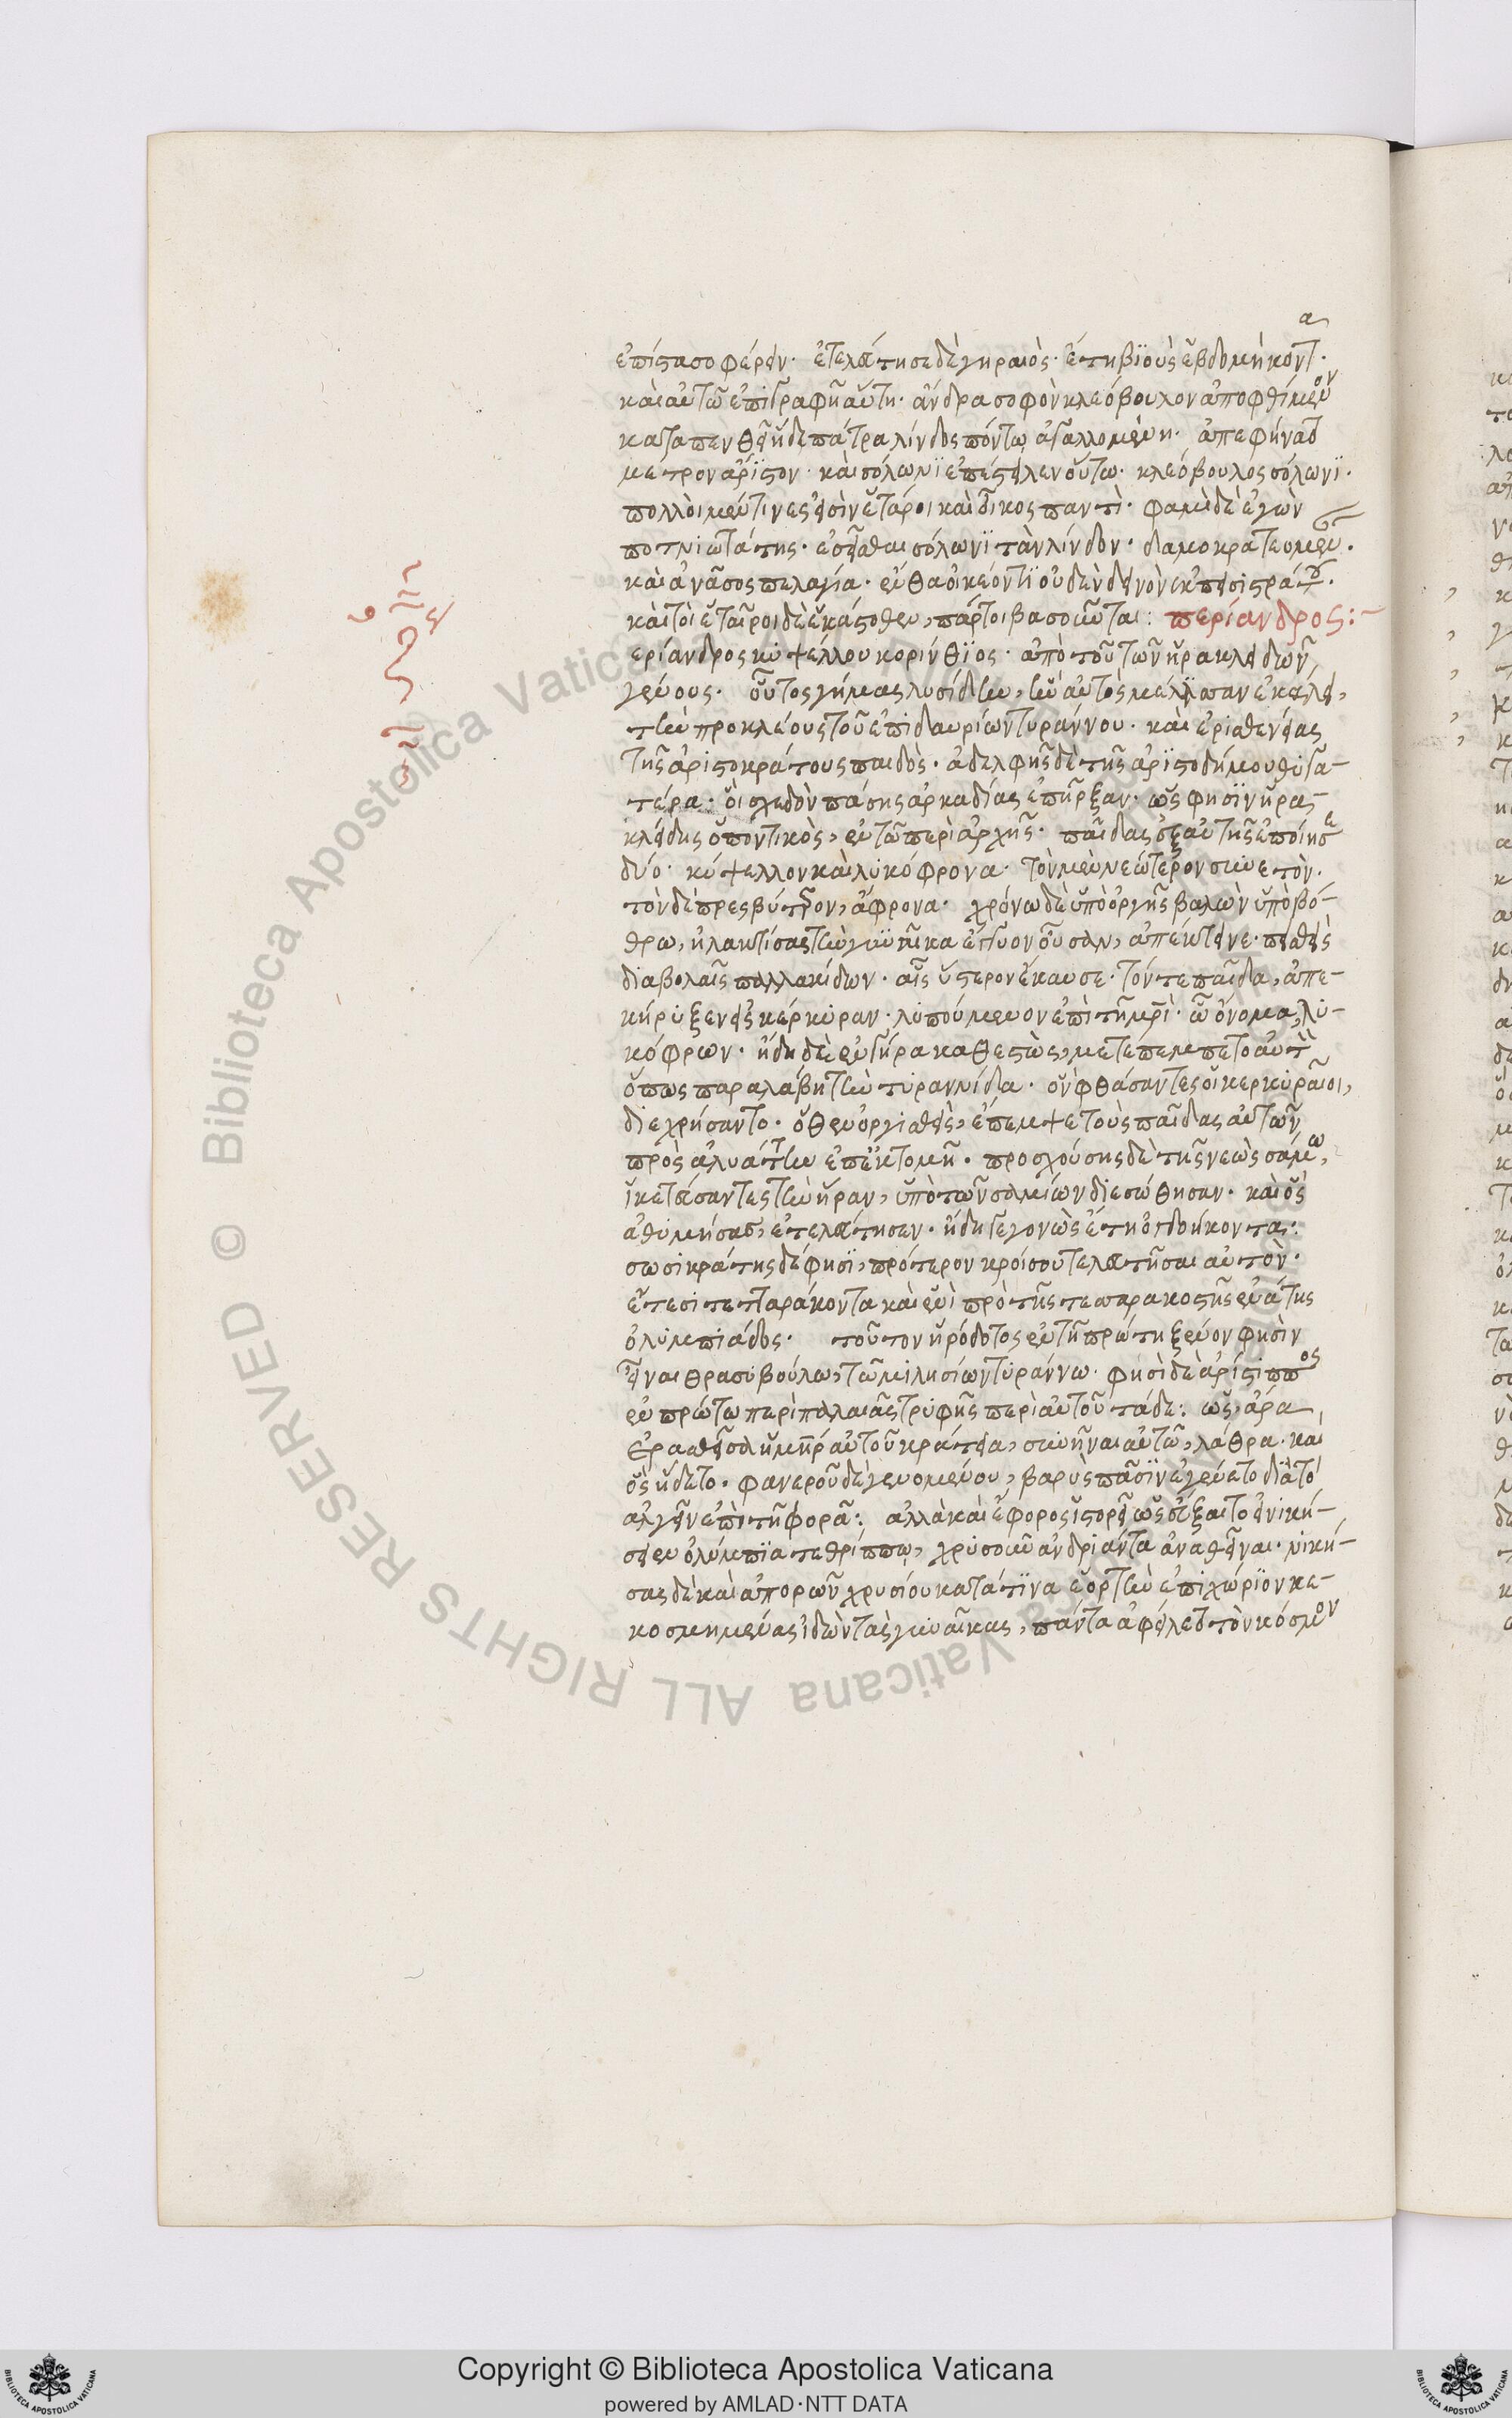 ἐπίστασο φέρειν· ἐτελεύτησε δὲ γηραιός· ἔτη βϊοὺς ἑβδομήκοντα·
καὶ αὐτῶ ἐπιγραφὴ αὕτη· ἄνδρα σοφὸν κλεόβουλον ἀποφθίμενον
καταπενθεῖ ἥδε πάτρα λίνδος πόντω ἀγαλλομένη· ἀπεφήνατο
μετρον ἄρϊστον· καὶ σόλωνϊ ἐπέστειλεν οὕτω· κλεόβουλος σόλωνϊ·
πολλοὶ μέν τινες εἰσὶν ἑταῖροι καὶ οἶκος παντὶ· φαμὶ δὲ ἐγὼν
ποτνιωτάτης· ἐσεῖσθαι σόλωνϊ τὰν λίνδον· δαμοκρατεομέν.
καὶ ἁ νᾶσος πελαγία· ἔνθα οἰκέοντϊ οὐδὲν δεινὸν ἐκ πεισιστρά.
καὶ τοὶ ἑταῖροι δὲ ἑκάστοθεν, πάρτοι βασοιεῦται: περίανδρος:
ερίανδρος κυψέλλου κορίνθϊος· ἀπὸ τοῦ τῶν ἡρακλειδῶν
γένους· οὗτος γήμας λυσίδην, ἣν αὐτὸς μέλϊσσαν ἐκάλει,
τὴν προκλέους τοῦ ἐπιδαυρίων τυράννου· καὶ ἐρισθενείας
τῆς ἀριστοκράτους παιδὸς· ἀδελφῆς δὲ τῆς ἀρϊστοδήμου θυγα-
τέρα· οἳ σχεδὸν πάσης ἀρκαδίας ἐπῆρξαν· ὥς φησϊν ἡρα-
κλείδης ὁ ποντικὸς, ἐν τῶ περὶ ἀρχῆς· παῖδας ἐξ αὐτῆς ἐποίησε
δύο· κύψελλον καὶ λυκόφρονα· τὸν μὲν νεώτερον συνετὸν·
τὸν δὲ πρεσβύτερον, ἄφρονα· χρόνω δὲ ὑπὸ ὀργῆς βαλὼν ὑποβό-
θρω, ἢ λακτίσας τὴν γυναῖκα ἔγκυον οὖσαν, ἀπέκτεινε· πεισθεὶς
διαβολαῖς παλλακίδων· αἷς ὕστερον ἔκαυσε· τόν τε παῖδα, ἀπε-
κήρυξεν εἰς κέρκυραν· λυπούμενον ἐπὶ τῆ μητρὶ· ὧ ὄνομα, λυ-
κόφρων· ἤδη δὲ ἐν γήρα καθεστὼς, μετεπέμπετο αὐτὸν
ὅπως παραλάβη τὴν τυραννίδα· ὃν φθάσαντες οἱ κερκυραῖοι,
διεχρήσαντο· ὅθεν ὀργισθεὶς, ἔπεμψε τοὺς παῖδας αὐτῶν
πρὸς ἀλυάττην ἐπ' ἐκτομῆ· προσχούσης δὲ τῆς νεὼς σάμω,
ἱκετεύσαντες τὴν ἥραν, ὑπὸ τῶν σαμίων διεσώθησαν· καὶ ὃς
ἀθυμήσας, ἐτελεύτησεν· ἤδη γεγονὼς ἔτη ὀγδοήκοντα:
σωσικράτης δέ φησϊ, πρότερον κροίσου τελευτῆσαι αὐτὸν·
ἔτεσι τετταράκοντα καὶ ἑνὶ πρὸ τῆς τεσσαρακοστῆς ἐνάτης
ὀλυμπιάδος· τοῦτον ἡρόδοτος ἐν τῆ πρώτη ξένον φησὶν
εἶναι θρασυβούλω, τῶ μιλησίων τυράννω· φησὶ δὲ ἀρίστιππος
ἐν πρώτω περὶ παλαιᾶς τρυφῆς περὶ αὐτοῦ τάδε: ὡς, ἄρα
ἐρασθεῖσα ἡ μήτηρ αὐτοῦ κράτεια, συνῆναι αὐτῶ, λάθρα· καὶ
ὃς ἥδετο· φανεροῦ δὲ γενομένου, βαρὺς πᾶσϊν ἐγένετο διὰ τὸ
ἀλγεῖν ἐπὶ τῆ φορᾶ: ἀλλὰ καὶ ἔφορος ἱστορεῖ ὡς εὔξαιτο εἰ νική-
σειεν ὀλύμπϊα τεθρίππω, χρυσοῦν ἀνδριάντα ἀναθεῖναι· νική-
σας δὲ καὶ ἀπορῶν χρυσίου κατά τϊνα ἑορτὴν ἐπιχώρϊον κε-
κοσμημένας ἰδὼν τὰς γυναῖκας, πάντα ἀφείλετο τὸν κόσμον